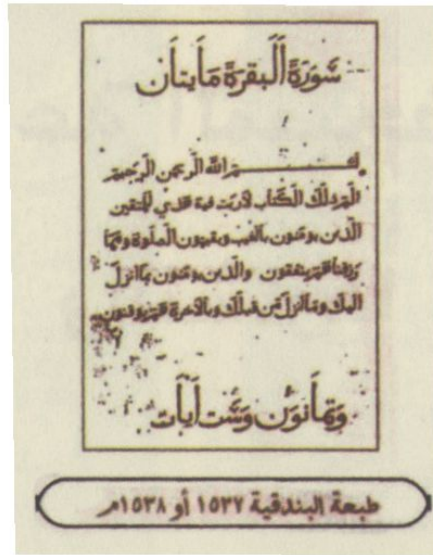 سُورَةُ اَلْبقرة مَأيتاَن
بســـــــــم الله الرحمن الرجيم
الم ذلك الكتاب لا ريب فيه هدي للمتقين
الذين يومنون بالغيب ويقيمون الصلوة ومما
رزقناهم ينفقون والذين يومنون بما انزل
اليك وما انزل من قبلك وبالاخرة هم يوقنون
وَثمَاَنوَن وَسَّت اَيآَت
طبعة البندقية ١٥٣٧ أو ١٥٣٨م